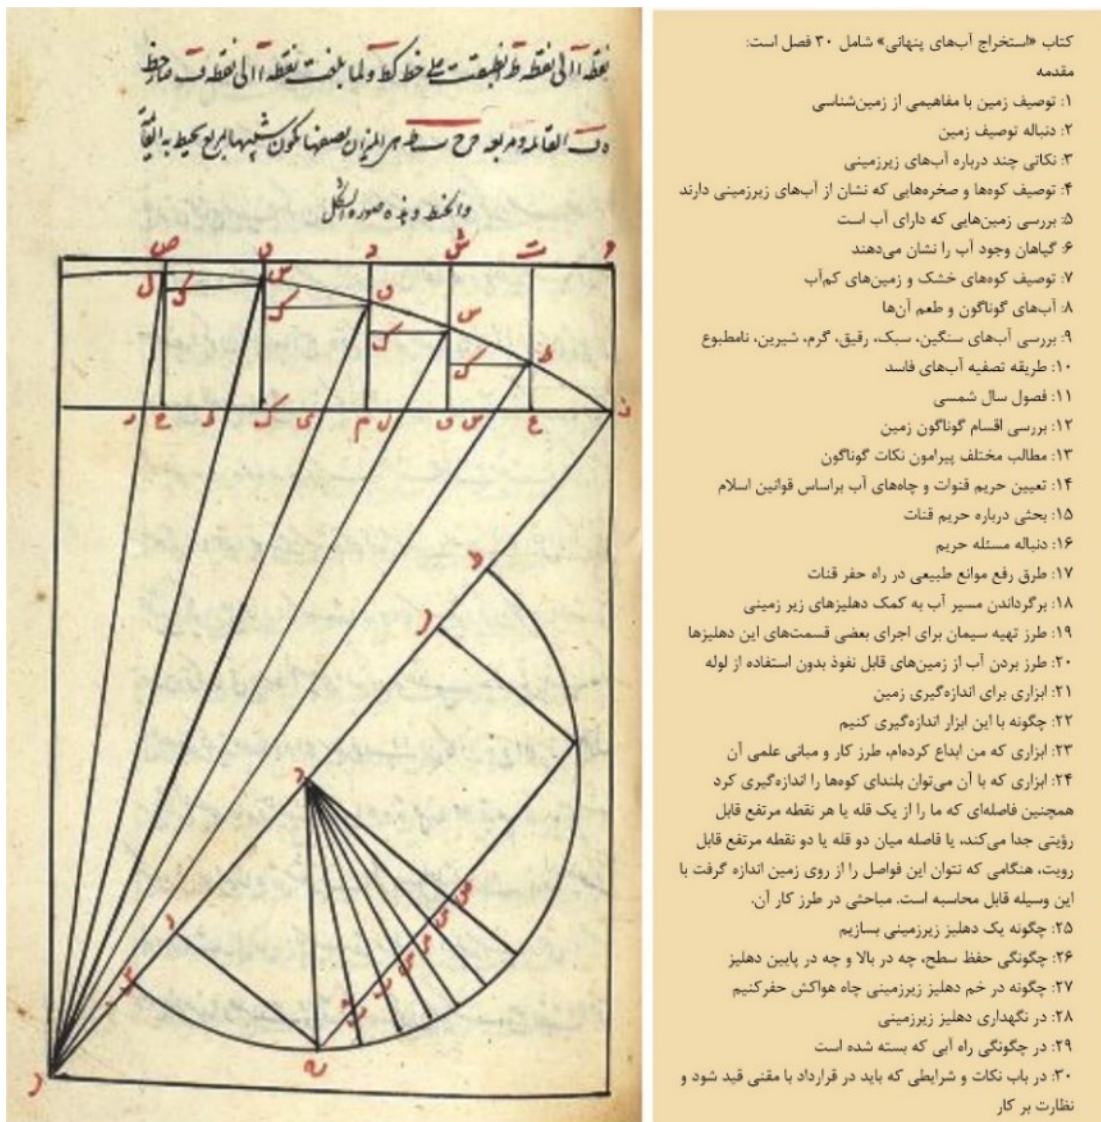 نقطه آ الی نقطه ط انطبقت علی خط کط ولما بلغت نقطه آ الی نقطه ف صار خط
والخط وهذه صورة الشکل
کتاب «استخراج آب‌های پنهانی» شامل ۳۰ فصل است:
مقدمه
۱: توصیف زمین با مفاهیمی از زمین‌شناسی
۲: دنباله توصیف زمین
۳: نکاتی چند درباره آب‌های زیرزمینی
۴: توصیف کوه‌ها و صخره‌هایی که نشان از آب‌های زیرزمینی دارند
۵: بررسی زمین‌هایی که دارای آب است
۶: گیاهان وجود آب را نشان می‌دهند
۷: توصیف کوه‌های خشک و زمین‌های کم‌آب
۸: آب‌های گوناگون و طعم آن‌ها
۹: بررسی آب‌های سنگین، سبک، رقیق، گرم، شیرین، نامطبوع
۱۰: طریقه تصفیه آب‌های فاسد
۱۱: فصول سال شمسی
۱۲: بررسی اقسام گوناگون زمین
۱۳: مطالب مختلف پیرامون نکات گوناگون
۱۴: تعیین حریم قنوات و چاه‌های آب براساس قوانین اسلام
۱۵: بحثی درباره حریم قنات
۱۶: دنباله مسئله حریم
۱۷: طرق رفع موانع طبیعی در راه حفر قنات
۱۸: برگرداندن مسیر آب به کمک دهلیزهای زیر زمینی
۱۹: طرز تهیه سیمان برای اجرای بعضی قسمت‌های این دهلیزها
۲۰: طرز بردن آب از زمین‌های قابل نفوذ بدون استفاده از لوله
۲۱: ابزاری برای اندازه‌گیری زمین
۲۲: چگونه با این ابزار اندازه‌گیری کنیم
۲۳: ابزاری که من ابداع کرده‌ام، طرز کار و مبانی علمی آن
۲۴: ابزاری که با آن می‌توان بلندای کوه‌ها را اندازه‌گیری کرد
همچنین فاصله‌ای که ما را از یک قله یا هر نقطه مرتفع قابل
رؤیتی جدا می‌کند، یا فاصله میان دو قله یا دو نقطه مرتفع قابل
رویت، هنگامی که نتوان این فواصل را از روی زمین اندازه گرفت با
این وسیله قابل محاسبه است. مباحثی در طرز کار آن.
۲۵: چگونه یک دهلیز زیرزمینی بسازیم
۲۶: چگونگی حفظ سطح، چه در بالا و چه در پایین دهلیز
۲۷: چگونه در خم دهلیز زیرزمینی چاه هواکش حفرکنیم
۲۸: در نگهداری دهلیز زیرزمینی
۲۹: در چگونگی راه آبی که بسته شده است
۳۰: در باب نکات و شرایطی که باید در قرارداد با مقنی قید شود و
نظارت بر کار